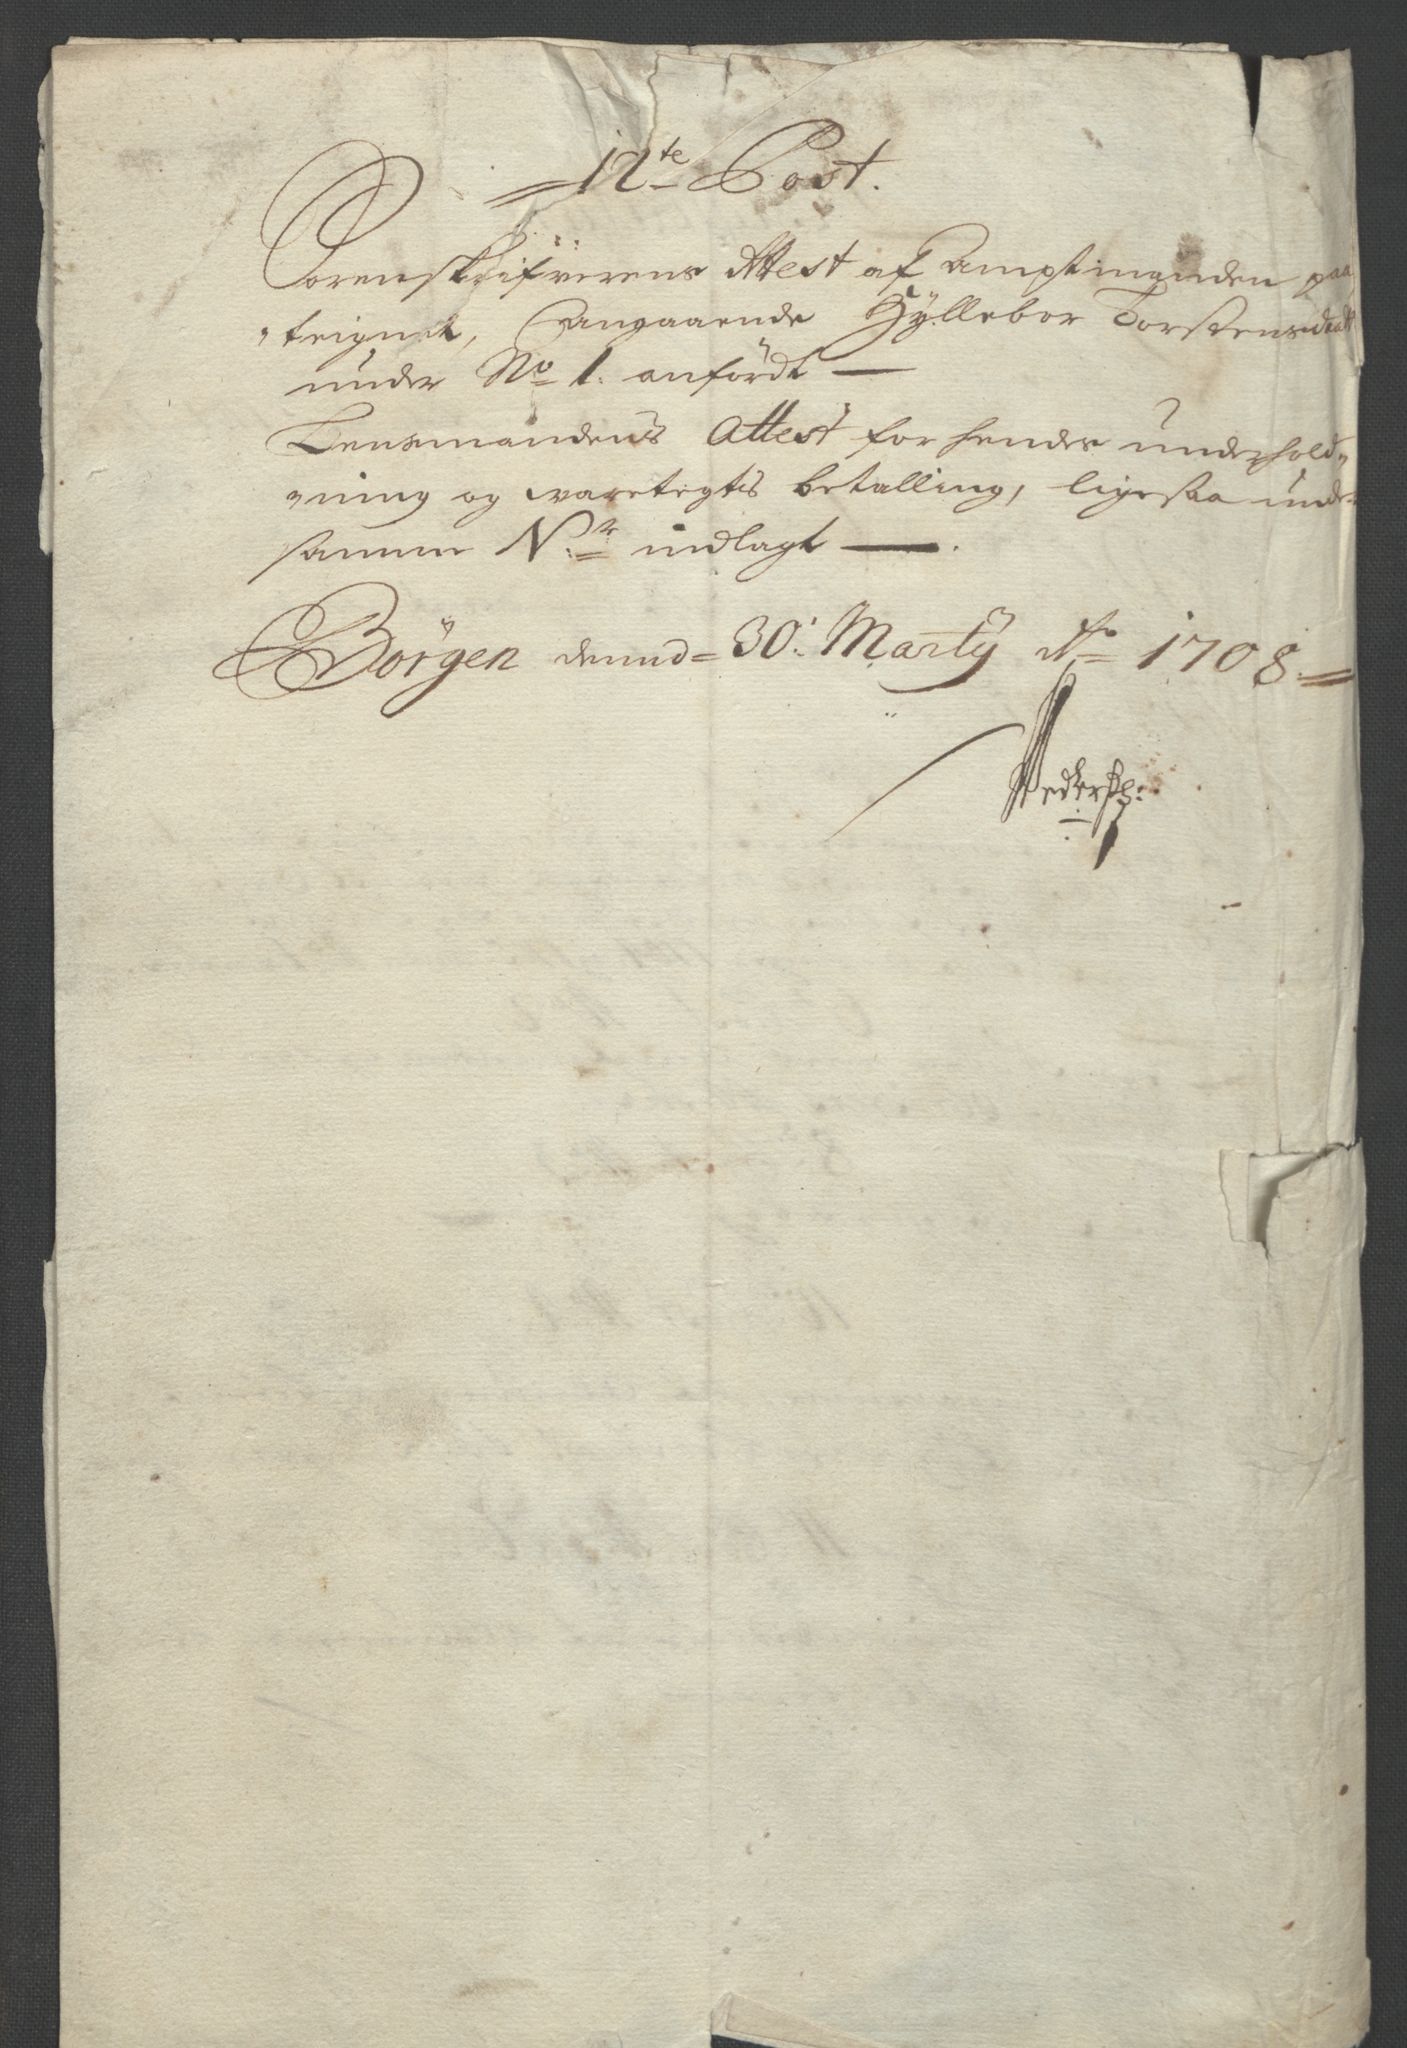 12te Post.
Sorenskrifverens Attest af Amptmanden paa
teignet, Angaaende Gyllebor Torstensdaatt
under No 1. anfördt —
Lensmandens Attest for hendes underhold-
ning og waretegts betalling, ligesaa under
samme Nr. indlagt — .
Börgen dennd 30. Marty Ao 1708